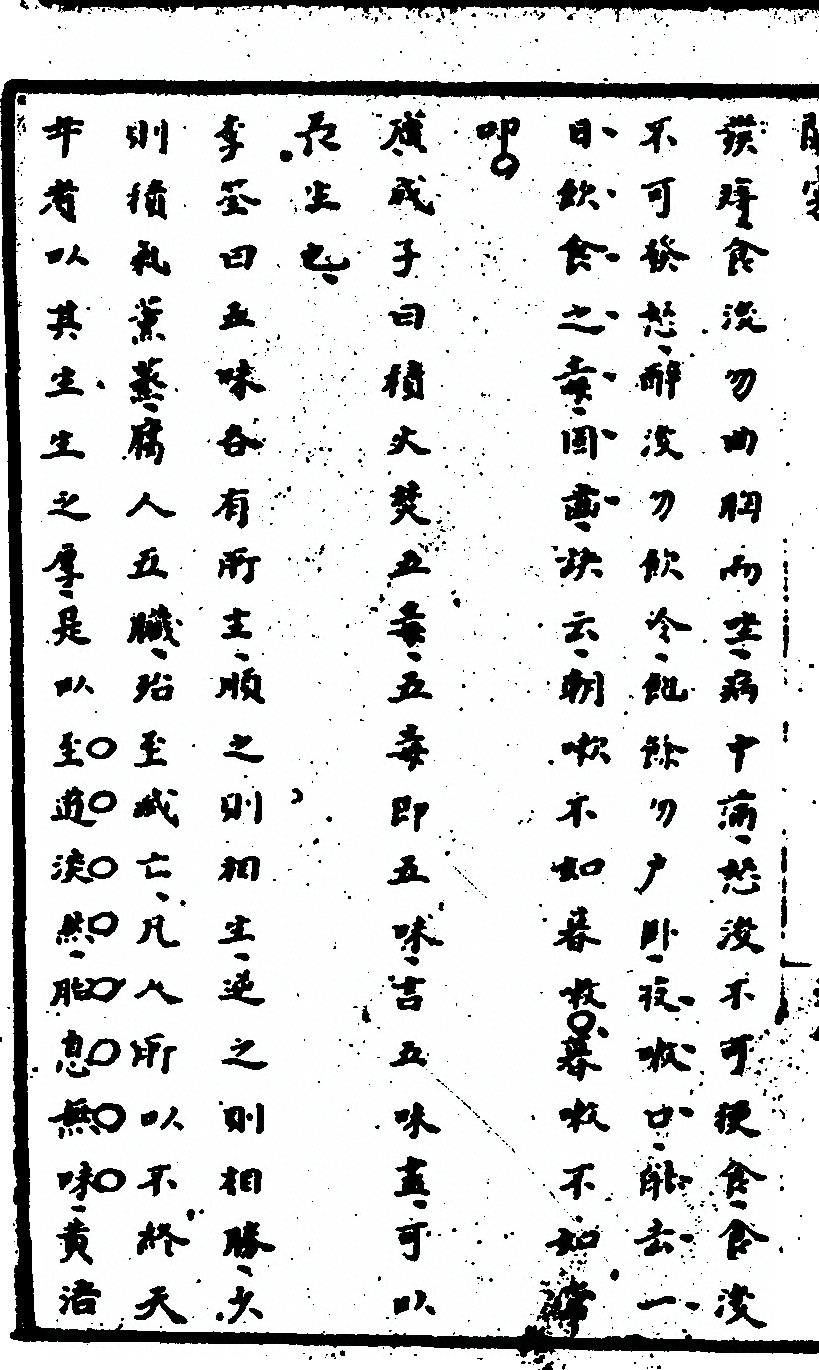 食後勿曲胸而坐病中滿怒後不可硬食食後
不可發怒醉後勿飲冷飽餘勿戶卧夜漱口能去一
日飲食之毒固齒訣云朝漱不如暮漱暮漱不如常
叩
廣成子曰積火焚五毒五毒即五味言五味盡可以
長生也
李筌曰五味各有所主順之則相生逆之則相勝久
則積氣薰蒸腐人五臟殆至滅亡凡人所以不終天
年者以其生生之厚是以至道淡然胎息無味黃治